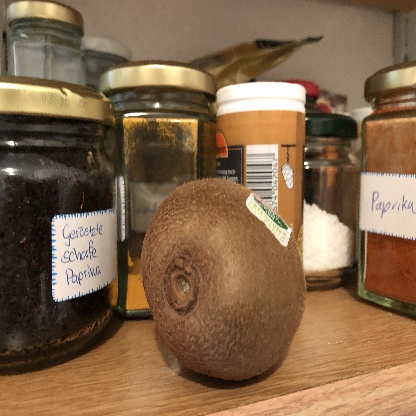 Geröstete
scharfe
Paprika
Paprika